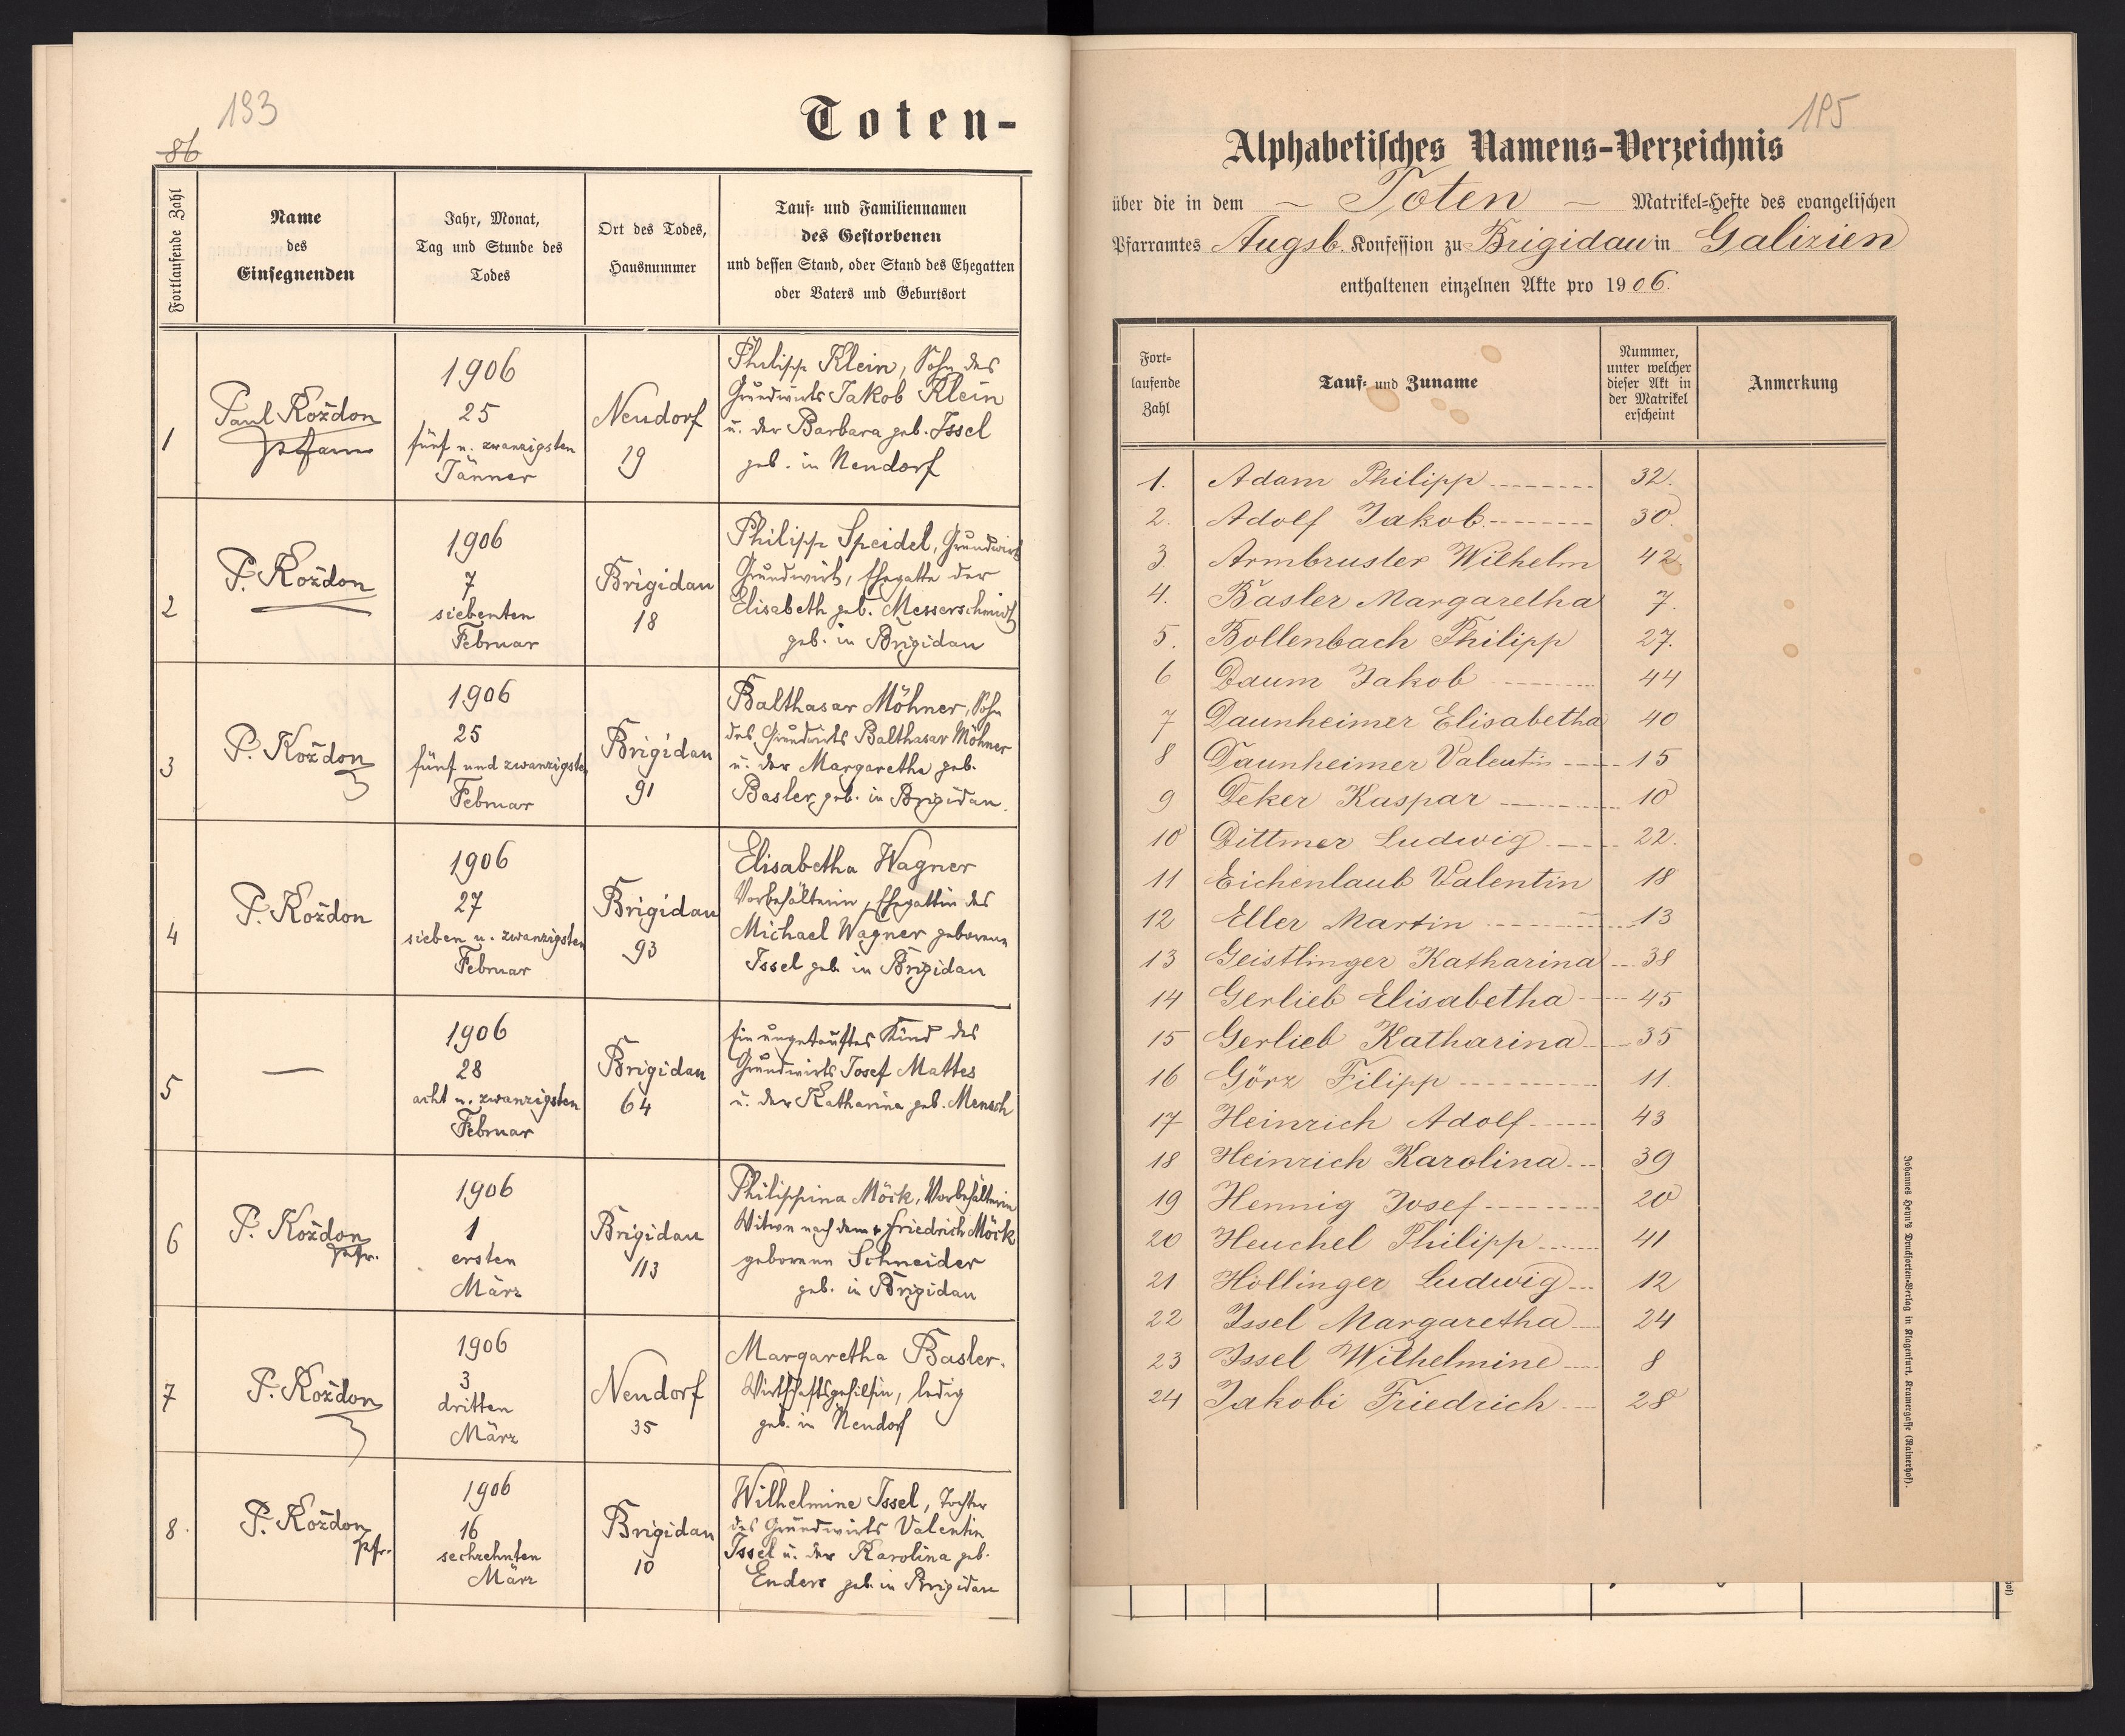 193
86
Toten-
Fortlaufende Zahl
Name
des
Einsegnenden
Jahr, Monat,
Tag und Stunde des
Todes
Ort des Todes,
Hausnummer
Tauf- und Familiennamen
des Gestorbenen
und dessen Stand, oder Stand des Ehegatten
oder Vaters und Geburtsort
1
Paul Kożdon
Pfarrer
1906
25
fünf u. zwanzigsten
Jänner
Neudorf
29
Philipp Klein, Sohn des
Grundwirts Jakob Klein
u. der Barbara geb. Issel
geb. in Neudorf
2
P. Kożdon
1906
7
siebenten
Februar
Brigidau
18
Philipp Speidel, Grundwirt
Grundwirt, Ehegatte der
Elisabeth geb. Messerschmidt
geb. in Brigidau
3
P. Kożdon
1906
25
fünf und zwanzigsten
Februar
Brigidau
91
Balthasar Möhner, Sohn
des Grundwirts Balthasar Möhner
u. der Margaretha geb.
Basler, geb. in Brigidau.
4
P. Kożdon
1906
27
sieben u. zwanzigsten
Februar
Brigidau
93
Elisabetha Wagner
Vorbehälterin, Ehegattin des
Michael Wagner geborene
Issel geb. in Brigidau
5
—
1906
28
acht u. zwanzigsten
Februar
Brigidau
64
Ein ungetauftes Kind des
Grundwirts Josef Mattes
u. der Katharina geb. Mensch
6
P. Kożdon
Pfr.
1906
1
ersten
März
Brigidau
113
Philippina Möck, Vorbehälterin
Witwe nach dem + Friedrich Möck
geborene Schneider
geb. in Brigidau
7
P. Kożdon
1906
3
dritten
März
Neudorf
35
Margaretha Basler.
Wirtschaftsgehilfin, ledig
geb. in Neudorf
8.
P. Kożdon
Pfr.
1906
16
sechzehnten
März
Brigidau
10
Wilhelmine Issel, Tochter
des Grundwirts Valentin
Issel u. der Karolina geb.
Enders geb. in Brigidau
185
Alphabetisches Namens-Verzeichnis
über die in dem – Toten – Matrikel-Hefte des evangelischen
Pfarramtes Augsb. Konfession zu Brigidau in Galizien
enthaltenen einzelnen Akte pro 1906.
Fort-
laufende
Zahl
Tauf- und Zuname
Nummer,
unter welcher
dieser Akt in
der Matrikel
erscheint
Anmerkung
1. Adam Philipp 32.
2. Adolf Jakob 30.
3 Armbruster Wilhelm 42.
4. Basler Margaretha 7.
5. Bollenbach Philipp 27.
6 Daum Jakob 44
7 Daunheimer Elisabetha 40
8 Daunheimer Valentin 15
9 Deker Kaspar 10
10 Dittmer Ludwig 22.
11 Eichenlaub Valentin 18
12 Eller Martin 13
13 Geistlinger Katharina 38
14 Gerlieb Elisabetha 45
15 Gerlieb Katharina 35
16 Görz Filipp 11.
17 Heinrich Adolf 43
18 Heinrich Karolina 39
19 Hennig Josef 20
20 Heuchel Philipp 41
21 Höllinger Ludwig 12
22 Issel Margaretha 24
23 Issel Wilhelmine 8
24 Jakobi Friedrich 28
Johannes Heyn's Drucksorten-Verlag in Klagenfurt, Kramergasse (Rainerhof).